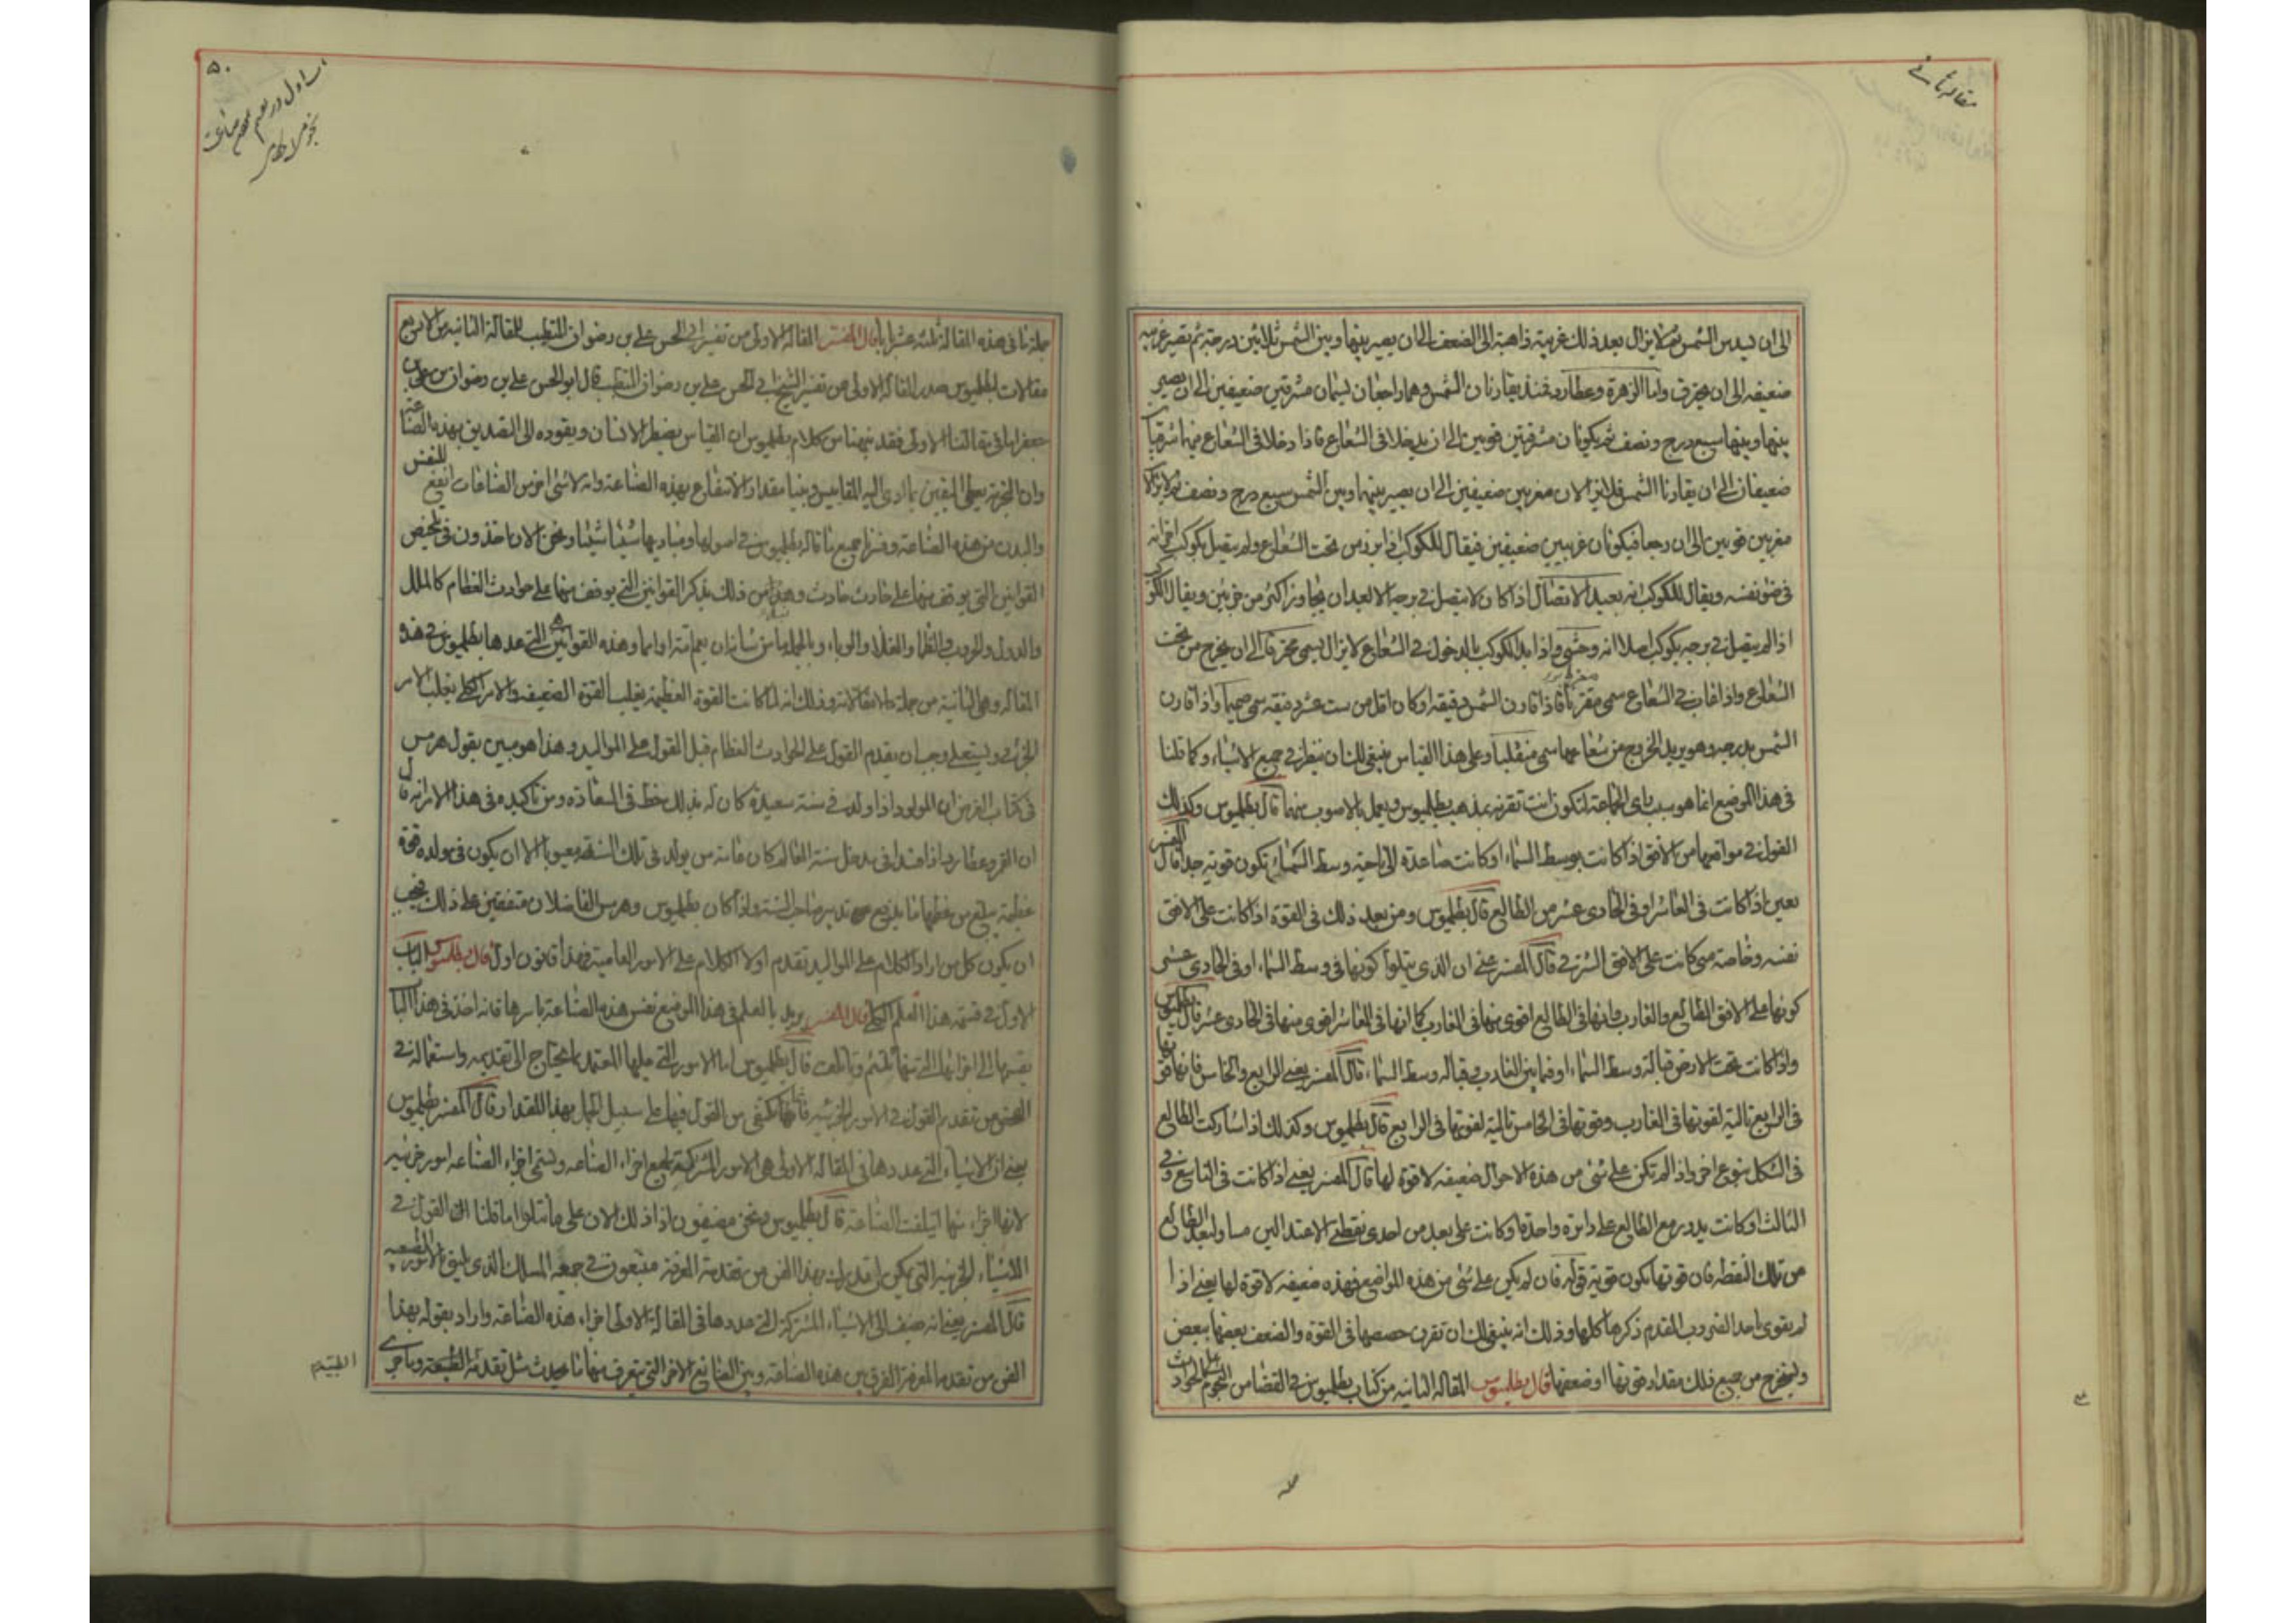 مقاله ثانی
الى ان يدس الشمس ثم لا تزال بعد ذلك غربية ذاهبة الى الضعف الى ان يصير بينها وبين الشمس ثلاثين درجة ثم تصير غربيه
ضعيفه الى ان تحترق واما الزهرة وعطارد فمنذ يقارنان الشمس وهما راجعان يسميان مشرقين ضعيفين الى ان يصير
بينها وبينهما سبع درج ونصف ثم يكونان مشرقين قويين الى ان يدخلا فى الشعاع فاذا دخلا فى الشعاع فهما شرقيان
ضعيفان الى ان يقارنا الشمس فلا يزالان مغربين ضعيفين الى ان يصير بينهما وبين الشمس سبع درج ونصف ثم لا يزالا
مغربين قويين الى ان رجعا فيكونان غربيين ضعيفين فيقال للكوكب اذا برز من تحت الشعاع ولم يتصل بكوكب اخر انه
فى ضوء نفسه ويقال للكوكب انه بعيد الاتصال اذا كان لا يتصل فى برجه الا بعد ان يجاوز اكثر من جزئين ويقال للكوكب
اذا لم يتصل فى برجه بكوكب اصلا انه وحشى واذا بدا الكوكب بالدخول فى الشعاع لا يزال يسمى محترقا الى ان يخرج من تحت
الشعاع واذا غاب فى الشعاع سمى فاذا قارن الشمس دقيقه او كان اقل من ست عشر دقيقه سمى صميما واذا قارن
الشمس بدرجه وهو يريد الخروج من شعاعها سمى منقلبا وعلى هذا القياس ينبغى لك ان تنظر فى جميع الاشياء وكما قلنا
فى هذا الموضع انما هو بحسب راى الجماعة لتكون انت تقرنه بمذهب بطلميوس وتعمل بالاصوب منهما قال بطلميوس وكذلك
القول فى مواضعها من الافق اذا كانت بوسط السماء او كانت صاعدة الى ناحية وسط السماء تكون قوية جدا قال المفسر
يعنى اذا كانت فى العاشر او فى الحادى عشر من الطالع قال بطلميوس ومن بعد ذلك فى القوة اذا كانت على الافق
نفسه وخاصة متى كانت على الافق الشرقى قال المفسر عنى ان الذى يتلوا كونها فى وسط السماء او فى الحادى عشر
كونها على الافق الطالع والغارب وانها فى الطالع اقوى منها فى الغارب كما انها فى العاشر اقوى منها فى الحادى عشر قال بطلميوس
واذا كانت تحت الارض قبالة وسط السماء او فيما بين الغارب وقبالة وسط السماء قال المفسر يعنى الرابع والخامس فانها قوتها
فى الرابع تالية لقوتها فى الغارب وقوتها فى الخامس تالية لقوتها فى الرابع قال بطلميوس وكذلك اذا شاركت الطالع
فى الشكل بنوع اخر واذا لم تكن على شئ من هذه الاحوال ضعيفه لا قوة لها قال المفسر يعنى اذا كانت فى التاسع وفى
الثالث او كانت يدور مع الطالع على دائرة واحدة او كانت على بعد من احدى نقطتى الاعتدالين مساو لبعد الطالع
من تلك النقطه فان قوتها تكون قوية قوله فان لم يكن على شئ من هذه المواضع فهذه ضعيفه لا قوة لها يعنى اذا
لم يقوى باحد الضروب المقدم ذكرها كلها وذلك انه ينبغى لك ان تقرن حصصها فى القوة والضعف بعضها ببعض
وليخرج من جميع ذلك مقدار قوتها او ضعفها قال بطلميوس المقالة الثانية من كتاب بطلميوس فى القضا من النجوم على الحوادث
٥٠
جملة ما فى هذه المقالة ثلثه عشر بابا قال المفسر المقالة الاولى من تفسير ابى الحسن على بن رضوان المتطبب للمقالة الثانيه من الاربع
مقالات لبطلميوس صدر المقالة الاولى من تفسير الشيخ ابى الحسن على بن رضوان المتطبب قال ابو الحسن على بن رضوان بن على بن
جعفر اما فى مقالتنا الاولى فقد بينا من كلام بطلميوس ان القياس يضطر الانسان ويقوده الى التصديق بهذه الصناعة
وان التجربة يعطى اليقين بما ادى اليه المقاييس وبينا مقدار الانتفاع بهذه الصناعة وانه لا شئ اخر من الصناعات انفع للنفس
والبدن من هذه الصناعة وفسرنا جميع ما قاله بطلميوس فى اصولها ومباديها شيئا شيئا ونحن الان اخذون فى تلخيص
القوانين التى يوقف منها على حادث حادث من ذلك بذكر القوانين التى يوقف منها على حوادث العظام كالملل
والدول والحروب والغلاء والوباء وبالجملة ما من شانه ان يعم وهذه القوانين هى التى عدها بطلميوس فى هذه
المقاله وهى الثانية من جملة مقالاته وذلك انه لما كانت القوة العظيمة يغلب القوة الضعيفه والامر الكلى يغلب الامر
الجزئى ويستعلى وجب ان يقدم القول على الحوادث العظام قبل القول على المواليد وهذا هو مبين بقول هرمس
فى كتاب الفرض ان المولود اذا ولد فى سنة سعيدة كان له بذلك حظ فى السعادة ومن تاكيده فى هذا الامر انه قال
ان القمر وعطارد اذا فسدا فى مدخل سنة العالم كان عامة من يولد فى تلك السنة معيوبا الا ان يكون فى مولده قوة
عظيمة يبلغ من عظمها ما يدفع تدبير صاحب السنة واذا كان بطلميوس وهرمس الفاضلان متفقين على ذلك فيجب
ان يكون كل من اراد الكلام على المواليد تقدم اولا الكلام على الامور العامية فهذا قانون اول قال بطلميوس الباب
الاول فى قسمة هذا العلم الكلى قال المفسر يريد بالعلم فى هذا الموضع نفس هذه الصناعة باسرها فانه اخذ فى هذا الباب
يقسمها الى اجزائها التى منها تلتئم وتاتلف قال بطلميوس اما الامور التى عليها المعتمد مما يحتاج الى تقديمه واستعماله فى
الفحص من تقدم القول فى الامور الجزئيه فانا نكتفى من القول فيها على سبيل الجمل بهذا المقدار قال المفسر بطلميوس
يعنى ان الاشياء التى عددها فى المقاله الاولى هى الامور المشتركة لجميع اجزاء الصناعه وتسمى اجزاء الصناعه امور جزئيه
لانها اجزاء منها ايتلفت الصناعة قال بطلميوس ونحن مضيفون اذا ذلك الان على ما يتلوا ما قلنا الى القول فى
الاشياء الجزئيه التى يمكن ان تدرك بهذا الفن من تقدمة المعرفة متبعون فى جميعه المسلك الذى يليق بالامور الطبيعيه
قال المفسر يعنى انه ضيف الى الاشياء المشتركة التى عددها فى المقالة الاولى اجزاء هذه الصناعة واراد بقوله بهذا
الفن من تقدمه المعرفة الفرق بين هذه الصناعة وبين الصنايع الاخر التى يتعرف منها ما يحدث مثل تقدمة الطبيعه وما جرى